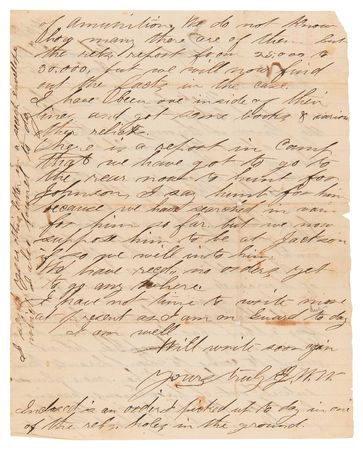 of amunition, We do not know
how many there are of them but
the rebs report from 25,000 to
30,000, but we will soon find
out the facts in the case.
I have been one inside of their
lines and got some books & various
other relicks.
There is a report in camp
that we have got to go to
the rear now to hunt for
Johnson, I say hunt for him
because we have searched in vain
for him so far but we now
suppose him to be at Jackson
if so we will into him.
We have recd. no orders yet
to go any where.
I have not time to write more
at present as I am on Guard to day
I am well
Will write soon again
Yours truly
Enclosed is an order I picked up to day in one
of the reb's holes in the ground.